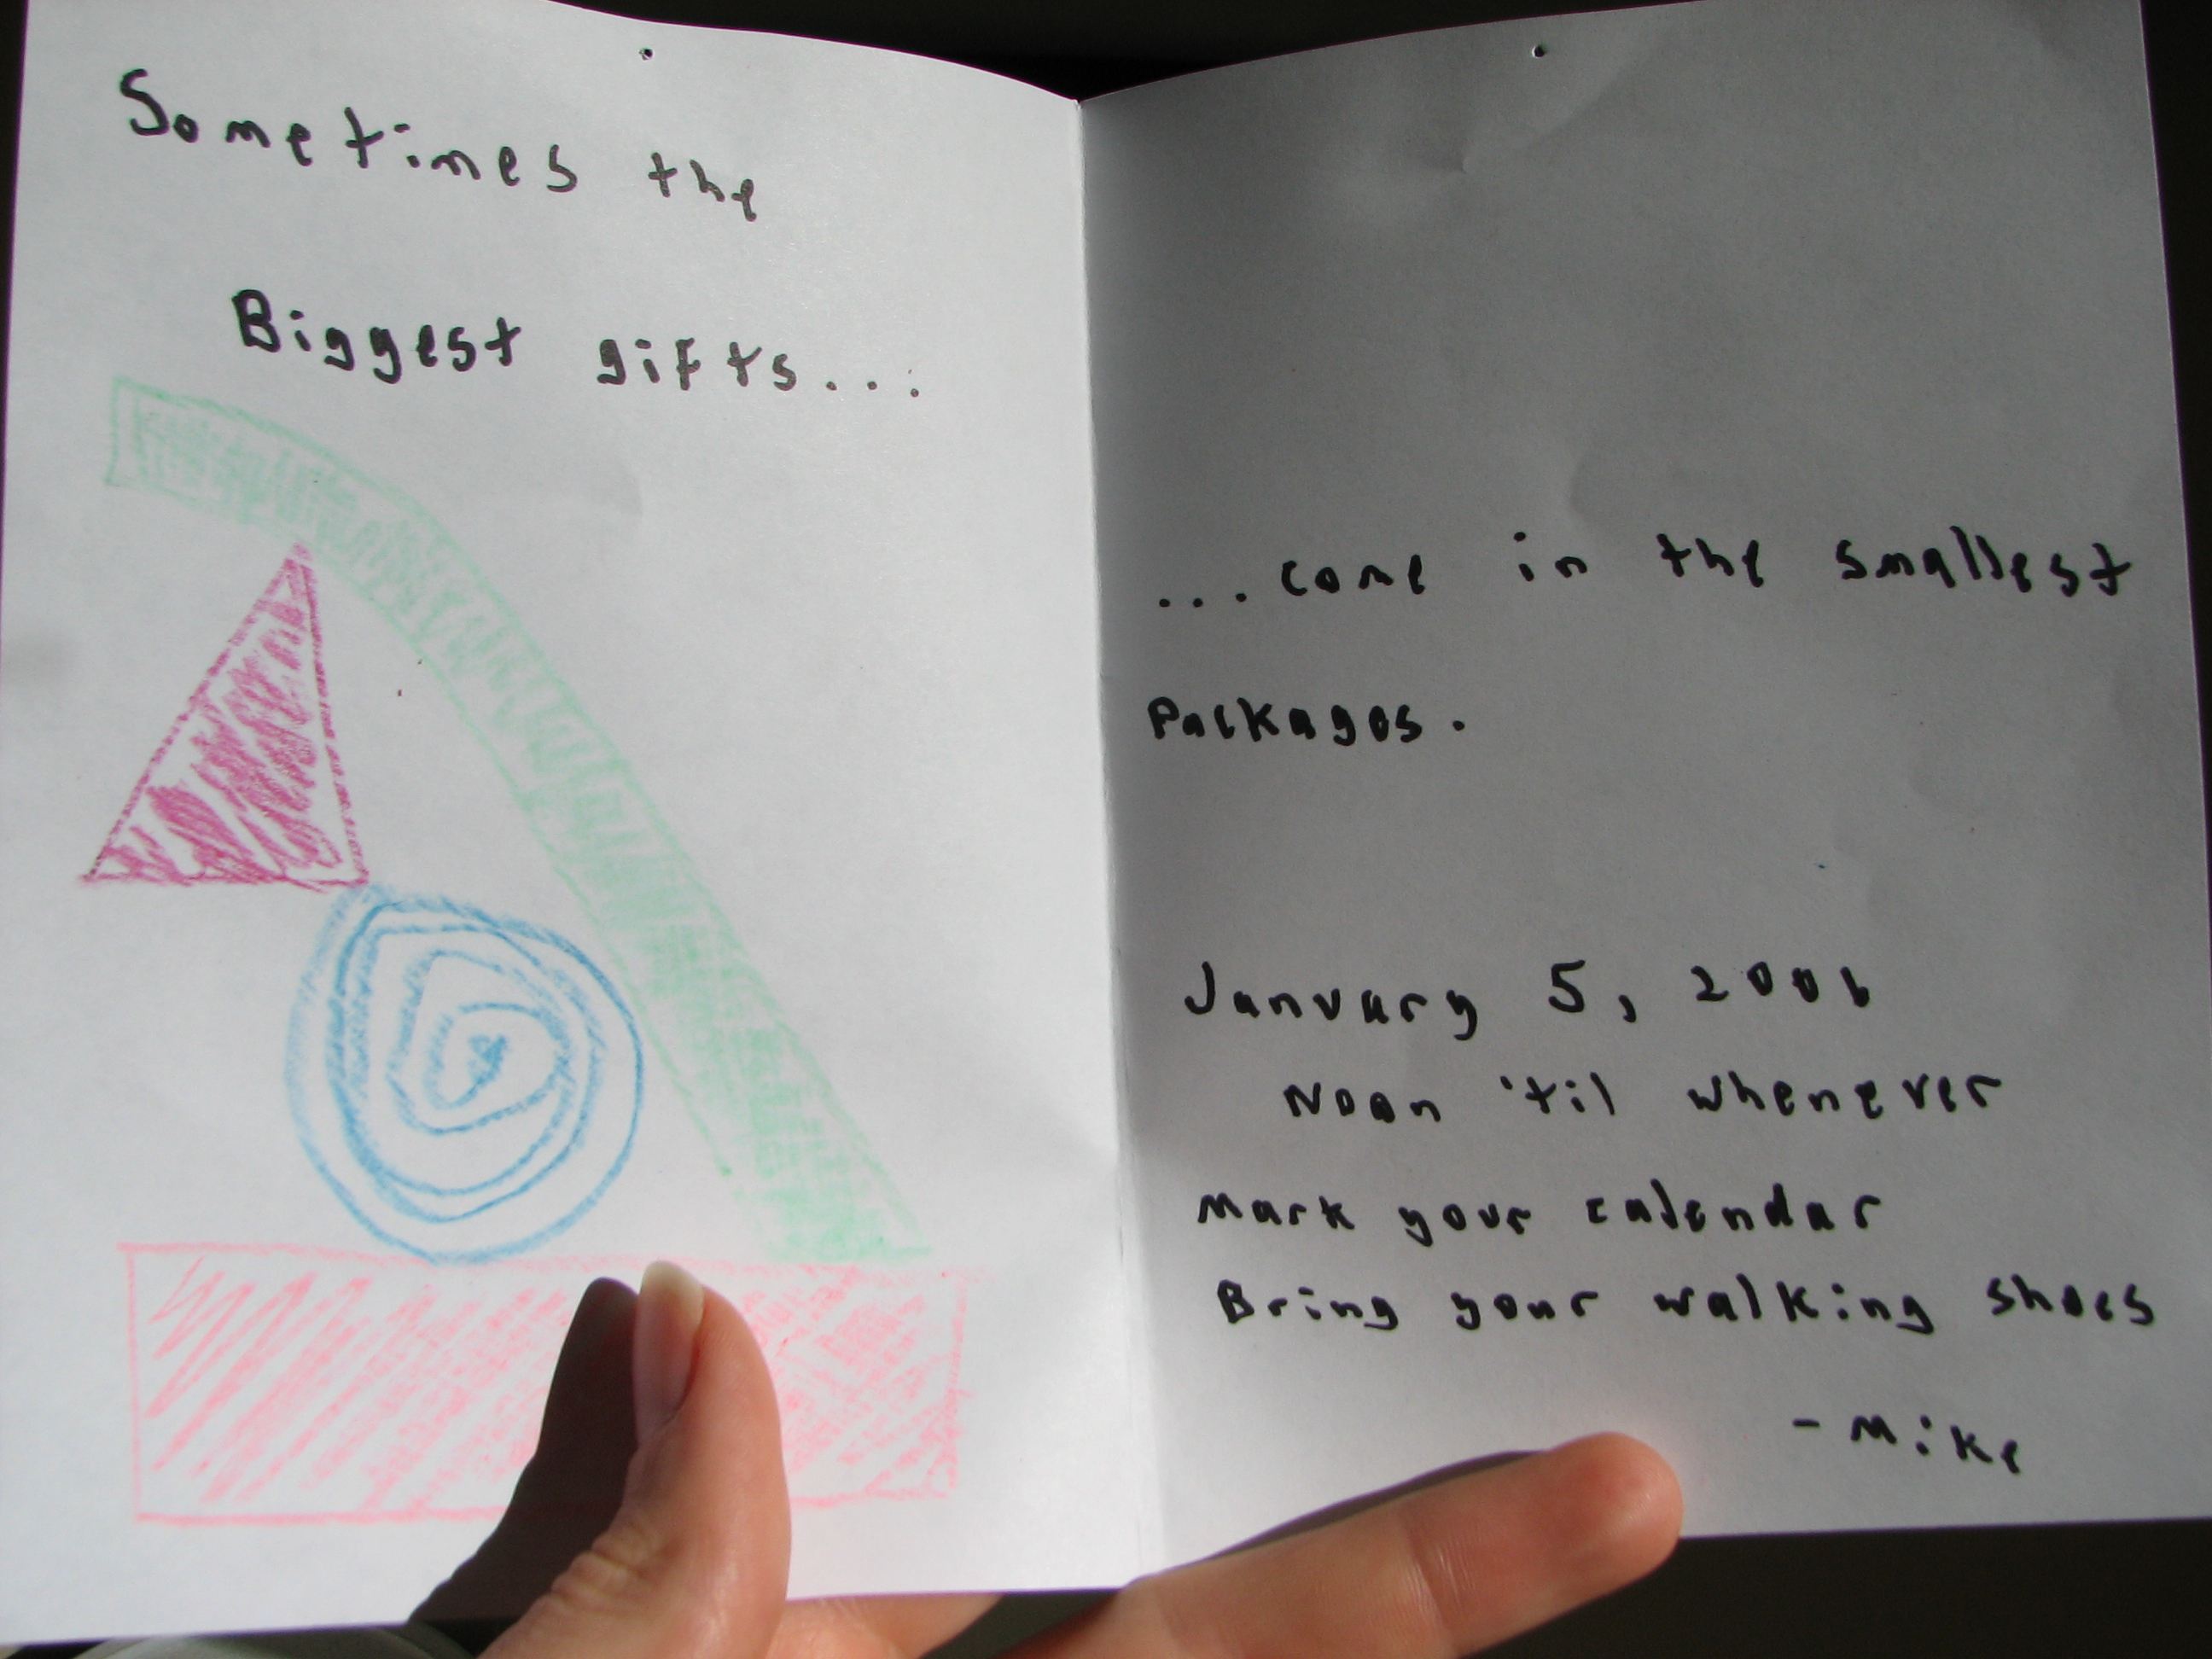 Sometimes the
Biggest gifts...
...come in the smallest
Packages.
January 5, 2006
Noon 'til whenever
Mark your calendar
Bring your walking shoes
- Mike